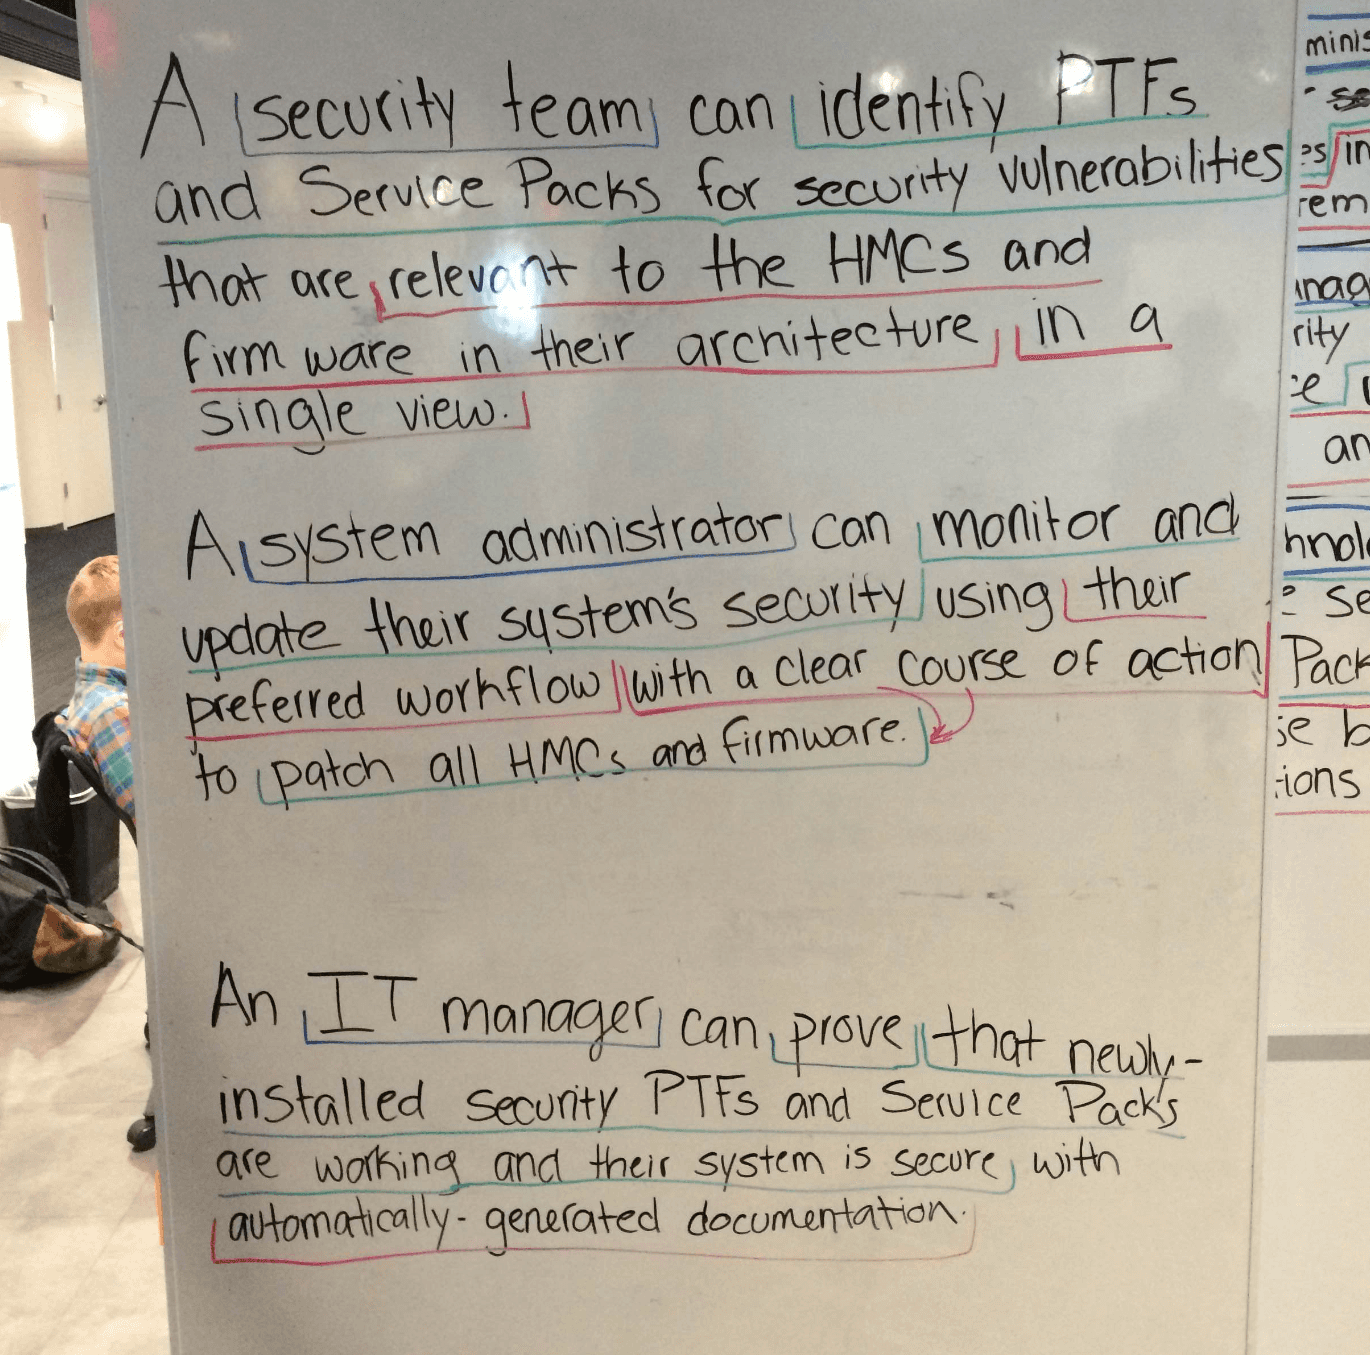 A security team can identify PTFs
and Service Packs for security vulnerabilities
that are relevant to the HMCs and
firmware in their architecture in a
single view.
A system administrator can monitor and
update their system's security using their
preferred workflow with a clear course of action
to patch all HMCs and firmware.
An IT manager can prove that newly-
installed security PTFs and Service Packs
are working and their system is secure, with
automatically-generated documentation.
minis
se
es in
rem
anag
rity
ce
an
hnolo
e se
Pack
se b
tions